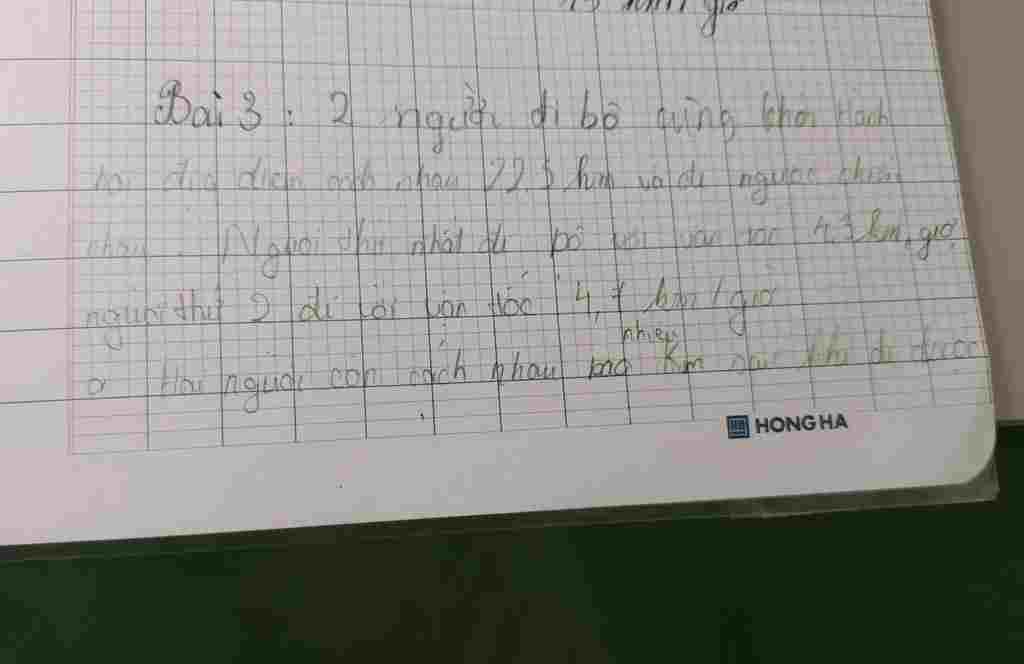 giờ
Bài 3 : 2 người đi bộ cùng khởi hành
địa cách nhau 22,5 km và đi ngược chiều
nhau. Người thứ nhất đi bộ với vận tốc 4,3 km, giờ
người thứ 2 đi với vận tốc 4, km/giờ
nhiêu
a Hai người còn cách nhau km khi đi được
HONG HA